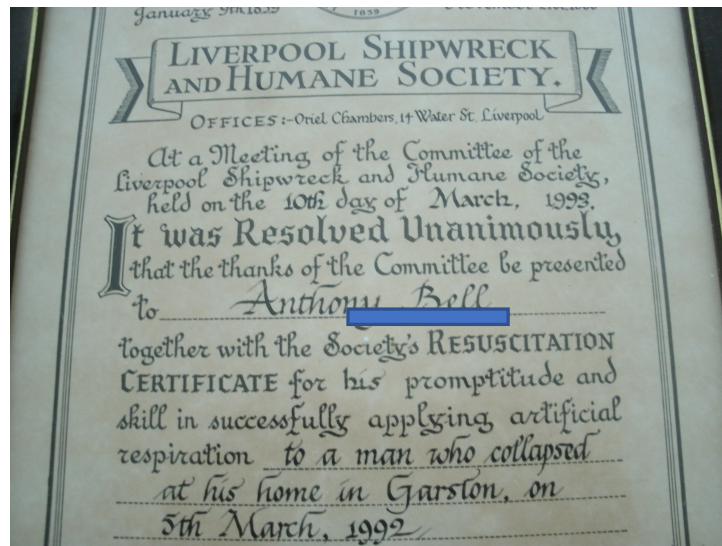 January 9th 1839
1839
LIVERPOOL SHIPWRECK
AND HUMANE SOCIETY.
OFFICES:-Oriel Chambers, 14 Water St. Liverpool
At a Meeting of the Committee of the
Liverpool Shipwreck and Humane Society,
held on the 10th day of March, 1993,
It was Resolved Unanimously,
that the thanks of the Committee be presented
to Anthony Bell
together with the Society's RESUSCITATION
CERTIFICATE for his promptitude and
skill in successfully applying artificial
respiration to a man who collapsed
at his home in Garston, on
5th March, 1992